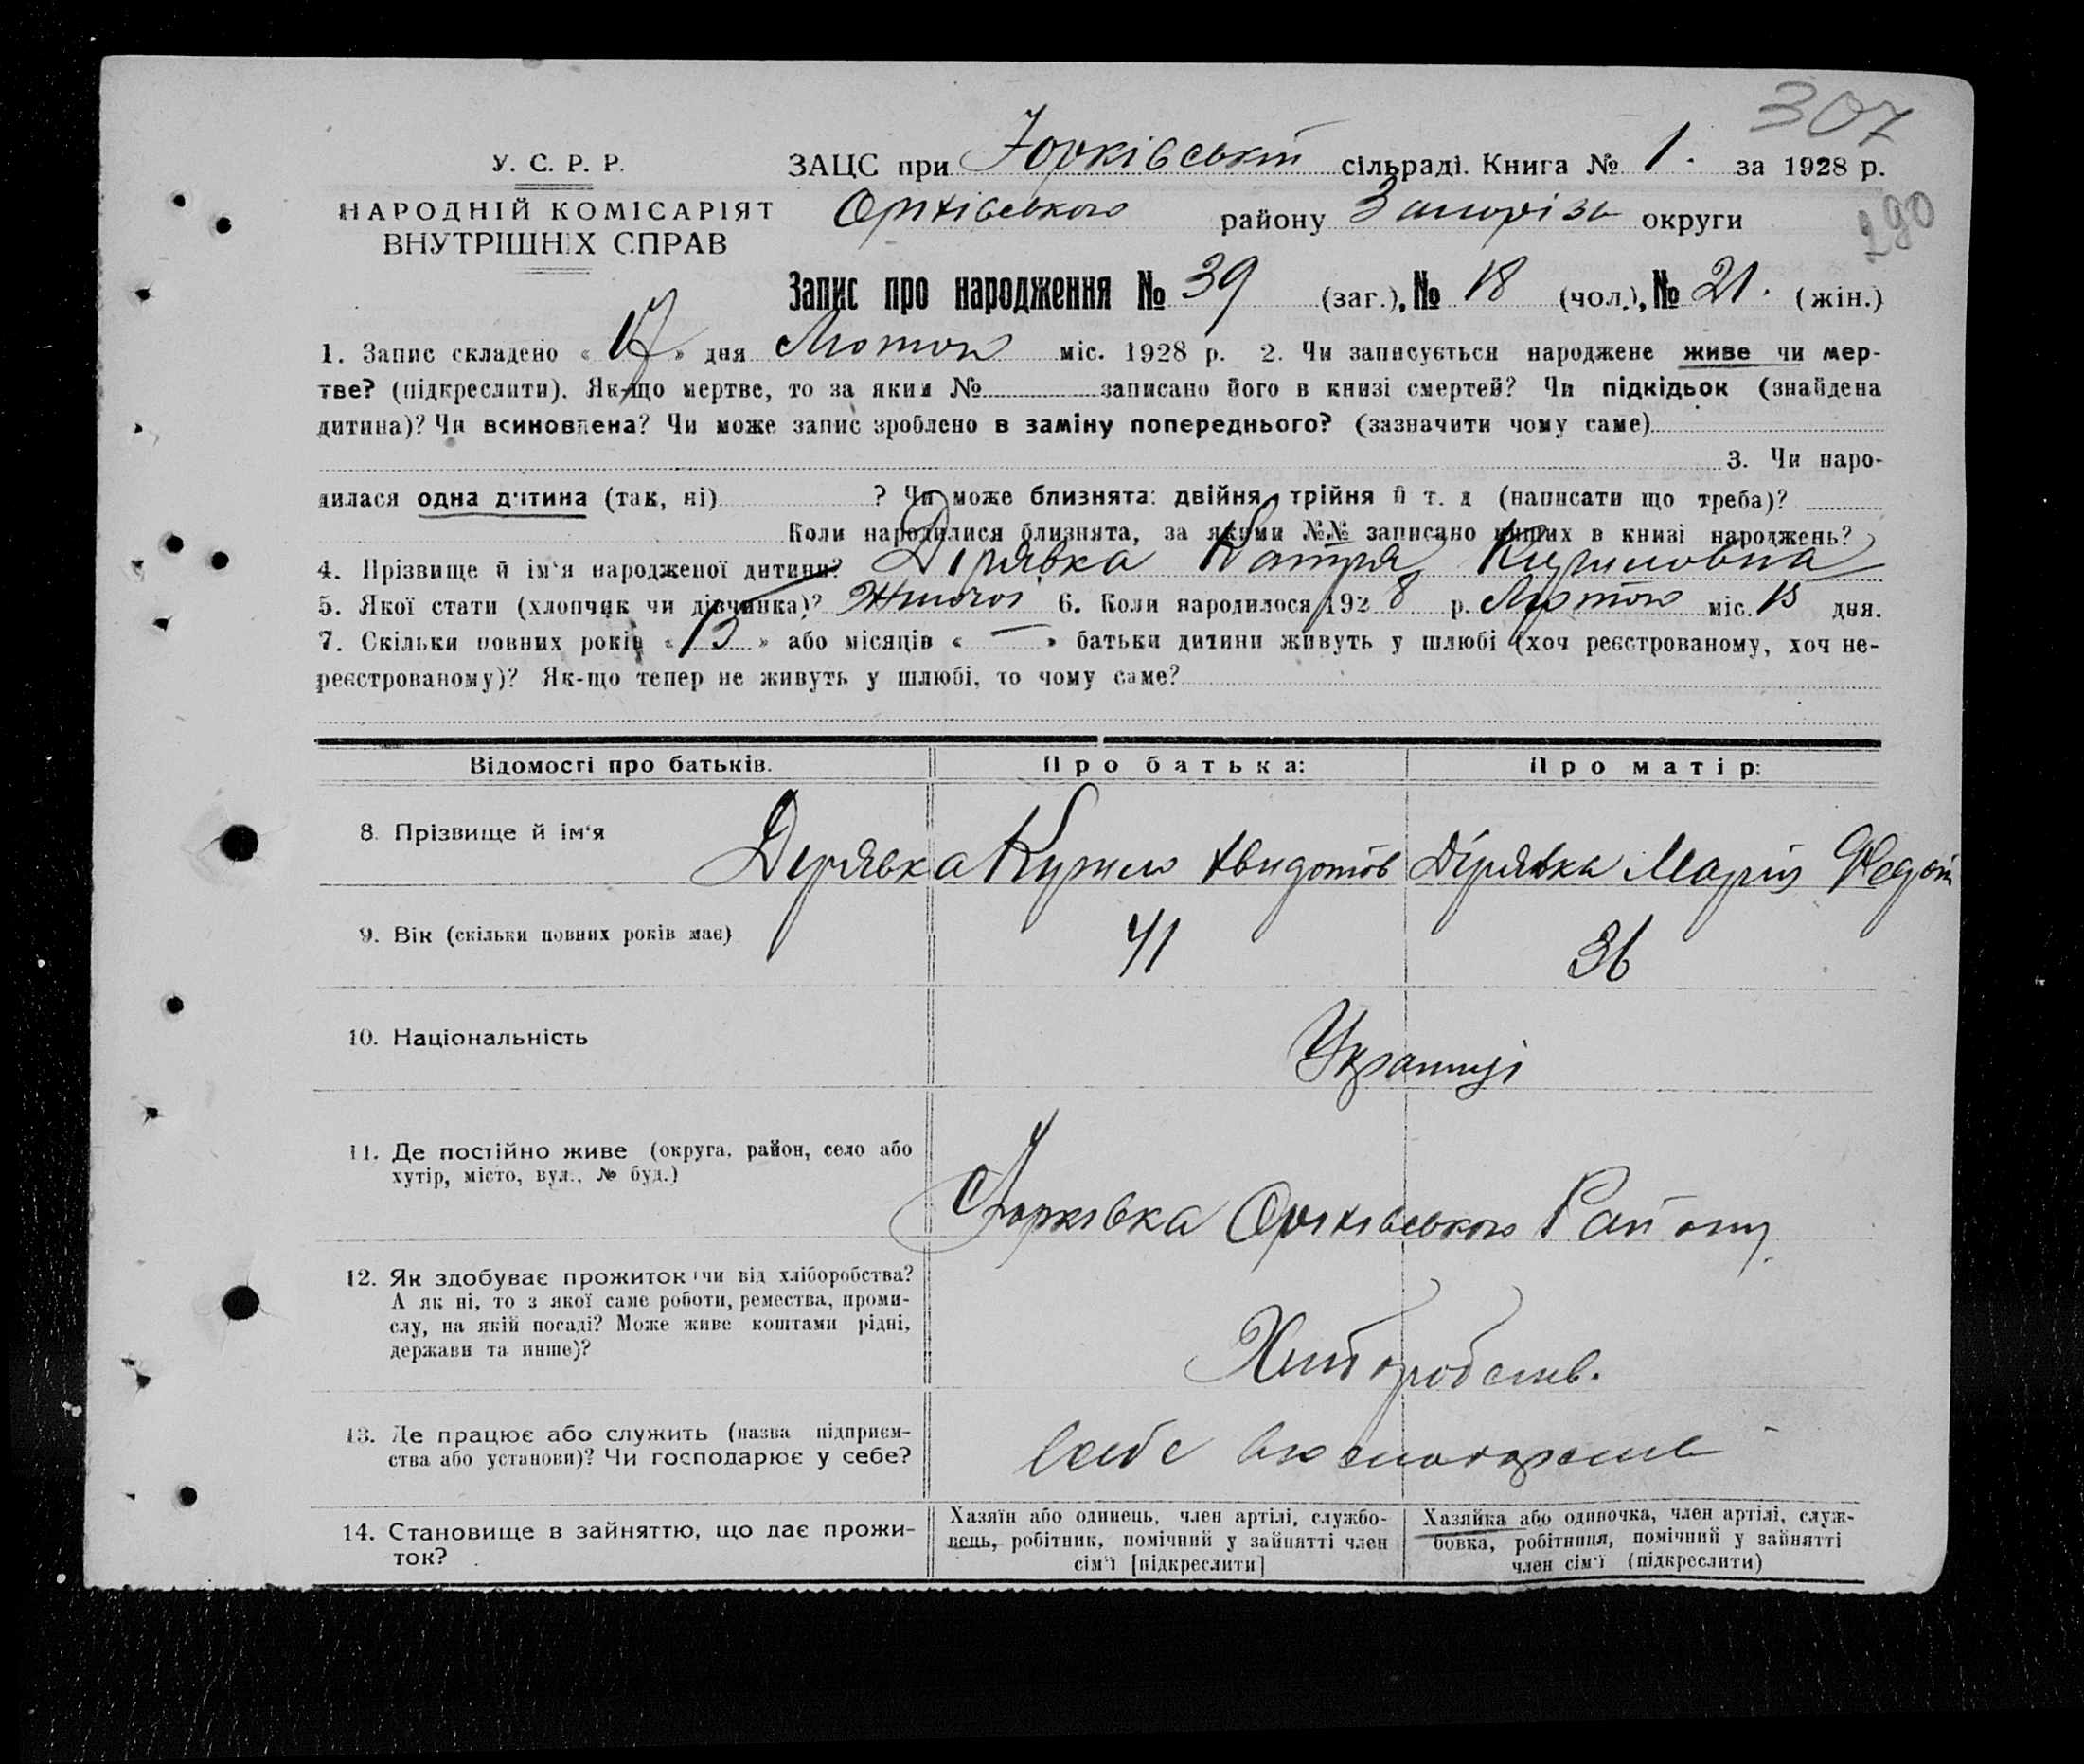 307
У. С. Р. Р.
ЗАЦС при Юрківській сільраді. Книга № 1. за 1928 р.
НАРОДНІЙ КОМІСАРІЯТ
ВНУТРІШНІХ СПРАВ
Оріхівського району Запорізь округи
290
Запис про народження № 39 (заг.), № 18 (чол.), № 21. (жін.)
1. Запис складено «17» дня Лютого міс. 1928 р. 2. Чи записується народжене живе чи мер-
тве? (підкреслити). Як-що мертве, то за яким № записано його в книзі смертей? Чи підкідьок (знайдена
дитина)? Чи всиновлена? Чи може запис зроблено в заміну попереднього? (зазначити чому саме)
3. Чи наро-
дилася одна дитина (так, ні) ? Чи може близнята: двійня, трійня й т. д (написати що треба)?
Коли народилися близнята, за якими №№ записано инших в книзі народжень?
4. Прізвище й ім'я народженої дитини? Дірявка Катря Кириловна
5. Якої стати (хлопчик чи дівчинка)? Жіночої 6. Коли народилося 1928 р. Лютого міс. 15 дня.
7. Скільки повних років «13» або місяців « — » батьки дитини живуть у шлюбі (хоч реєстрованому, хоч не-
реєстрованому)? Як-що тепер не живуть у шлюбі, то чому саме?
Відомості про батьків. Про батька: Про матір:
8. Прізвище й ім'я Дірявка Кирило Хвидотов Дірявка Марія Федот
9. Вік (скільки повних років має) 41 36
10. Національність Українці
11. Де постійно живе (округа, район, село або
хутір, місто, вул., № буд.)
Юрківка Оріхівського Району
12. Як здобуває прожиток (чи від хліборобства?
А як ні, то з якої саме роботи, ремества, проми-
слу, на якій посаді? Може живе коштами рідні,
держави та инше)?
Хліборобств.
13. Де працює або служить (назва підприєм-
ства або установи)? Чи господарює у себе?
14. Становище в зайняттю, що дає прожи-
ток?
Хазяїн або одинець, член артілі, службо-
вець, робітник, помічний у зайнятті член
сім'ї [підкреслити]
Хазяйка або одиночка, член артілі, служ-
бовка, робітниця, помічний у зайнятті
член сім'ї (підкреслити)